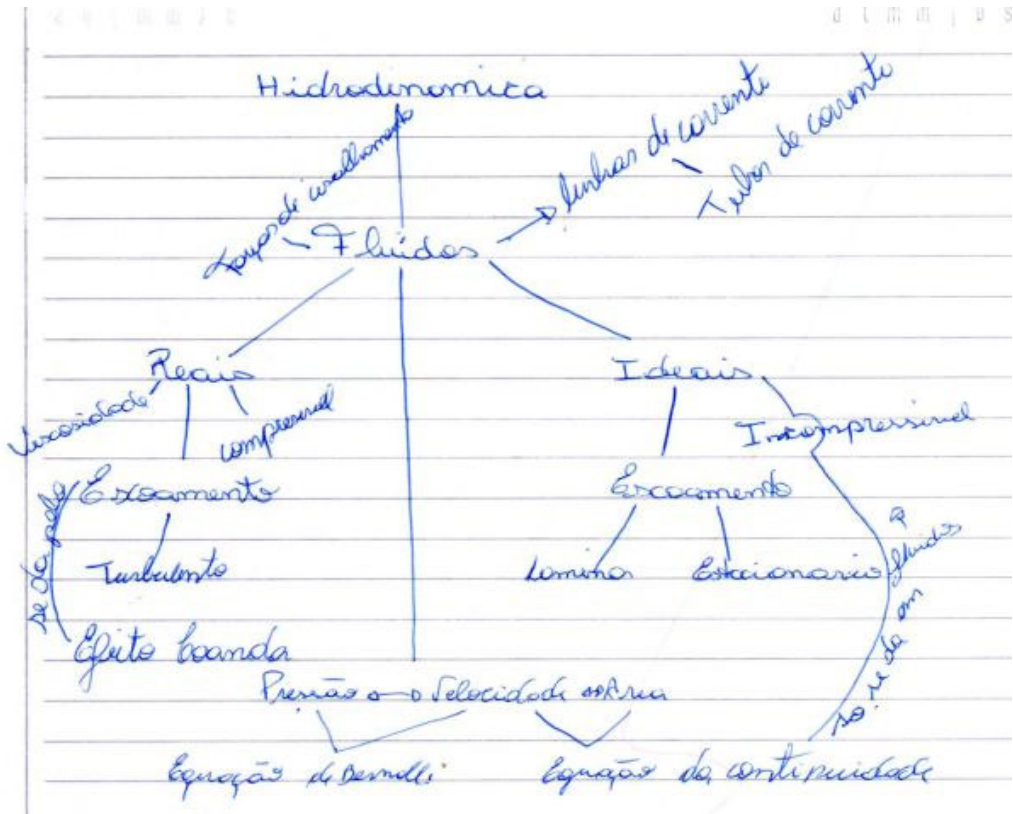 Hidrodinomica
Forças de cisalhamento
Linhas de corrente
Tubos de corrente
Fluidos
Reais
Ideais
Viscosidade
compressivel
Incompressivel
Escoamento
Escoamento
se da pelo
Turbulento
Laminar
Estacionario
Efeito Coanda
só se da em fluidos
Pressão Velocidade Area
Equação de Bernolli
Equação da continuidade